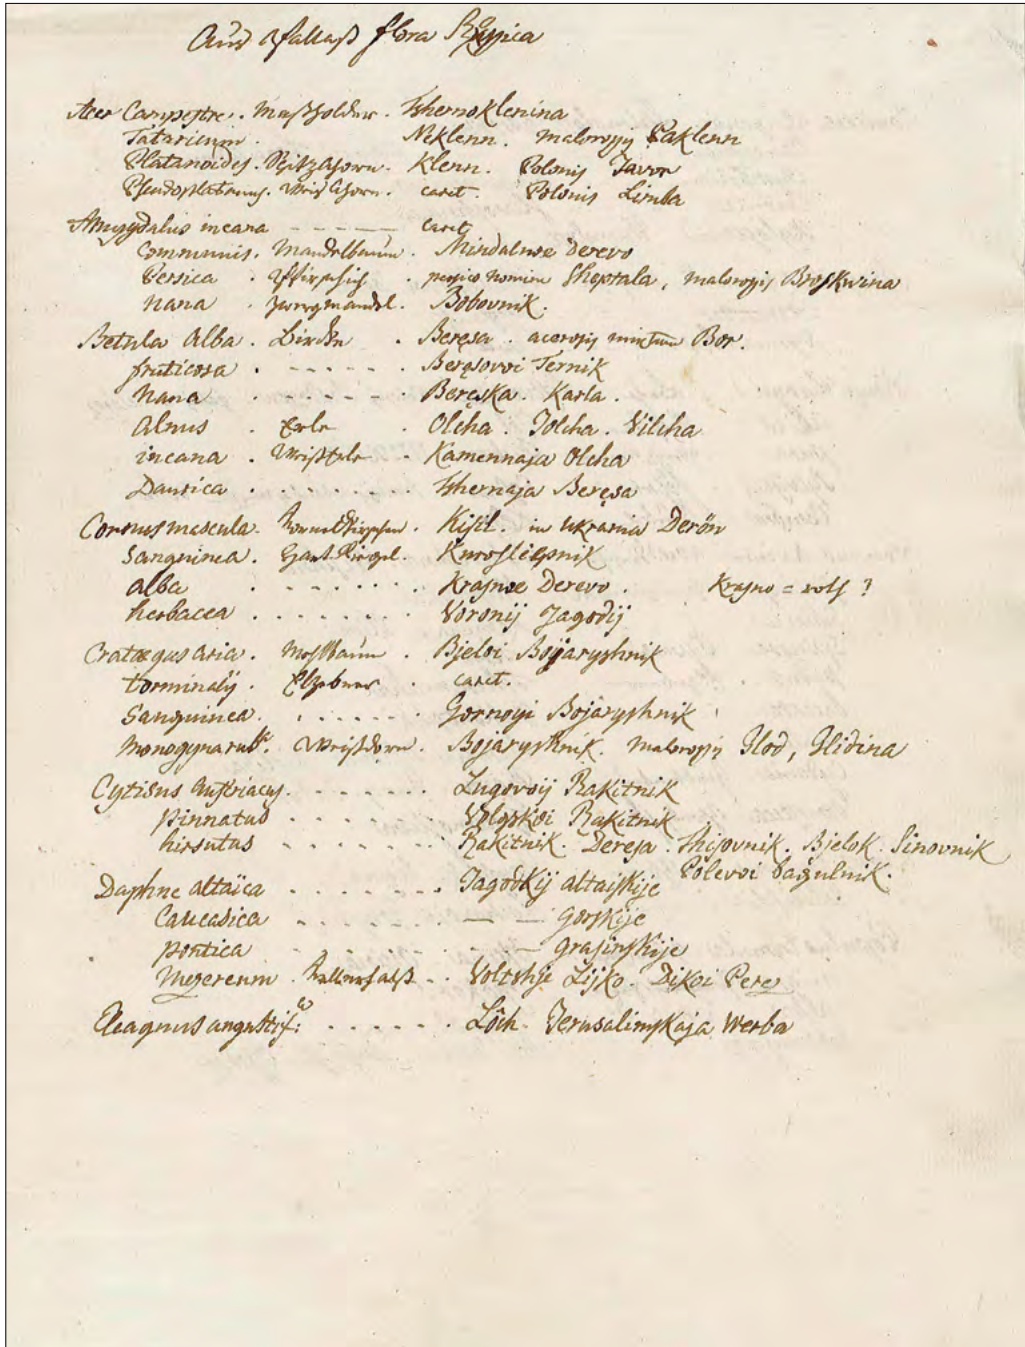 Aus Pallass flora Rossica
Acer Campestre. Massholder. Tshernoklenina
Tataricum. Neklenn. malorossis Paklenn
Platanoides. Spitzahorn. Klenn. Polonis Javor
Pseudoplatanus. Weissahorn. caret. Polonis Limba
Amygdalus incana - - - - - caret
Communis. Mandelbaum. Mindalnoe Derevo
Persica. Pfirsich. persico nomine Sheptala, malorossis Broskwina
nana. Zwergmandel. Bobovnik.
Betula Alba. Birke. Beresa. Bor.
fruticosa. - - - - - . Beresovoi Ternik
Nana. - - - - - . Bereska. Karla.
Alnus. Erle. Olcha. Jolcha. Vilcha
incana. Weisserle. Kamennaja Olcha
Daurica. . . . . . . . Tshernaja Beresa
Cornus mascula. Kornelkirschen. Kisil. in Ukrania Derön
Sanguinea. Hartriegel. Kuroslepnik
Alba . . . . . . . Krasnoe Derevo. Krasno = roth ?
herbacea . . . . . . . . Voronij Jagodij
Crataegus Aria. Mehlbaum. Bjeloi Bojaryshnik
torminalis. Elzebeer. caret.
Sanguinea. . . . . . . Gornoyi Bojaryshnik
Monogyna. Weissdorn. Bojaryshnik. malorossis Glod, Glidina
Cytisus Austriacus. . . . . . . . Lugovoij Rakitnik
pinnatus . . . . . . . Volgskoi Rakitnik
hirsutus . . . . . . . Rakitnik. Deresa. Shisovnik. Bjelok. Sinovnik
Polevoi bagulnik.
Daphne altaïca . . . . . . . . Jagodkij altaiskije
Caucasica . . . . . . . — — Gorskije
pontica . . . . . . . . — Grusinskije
Mezereum. Kellerhals. . Voltshje Lijko. Dikoi Perez
Elaeagnus angustif: . . . . . . Loch. Jerusalimskaja Werba